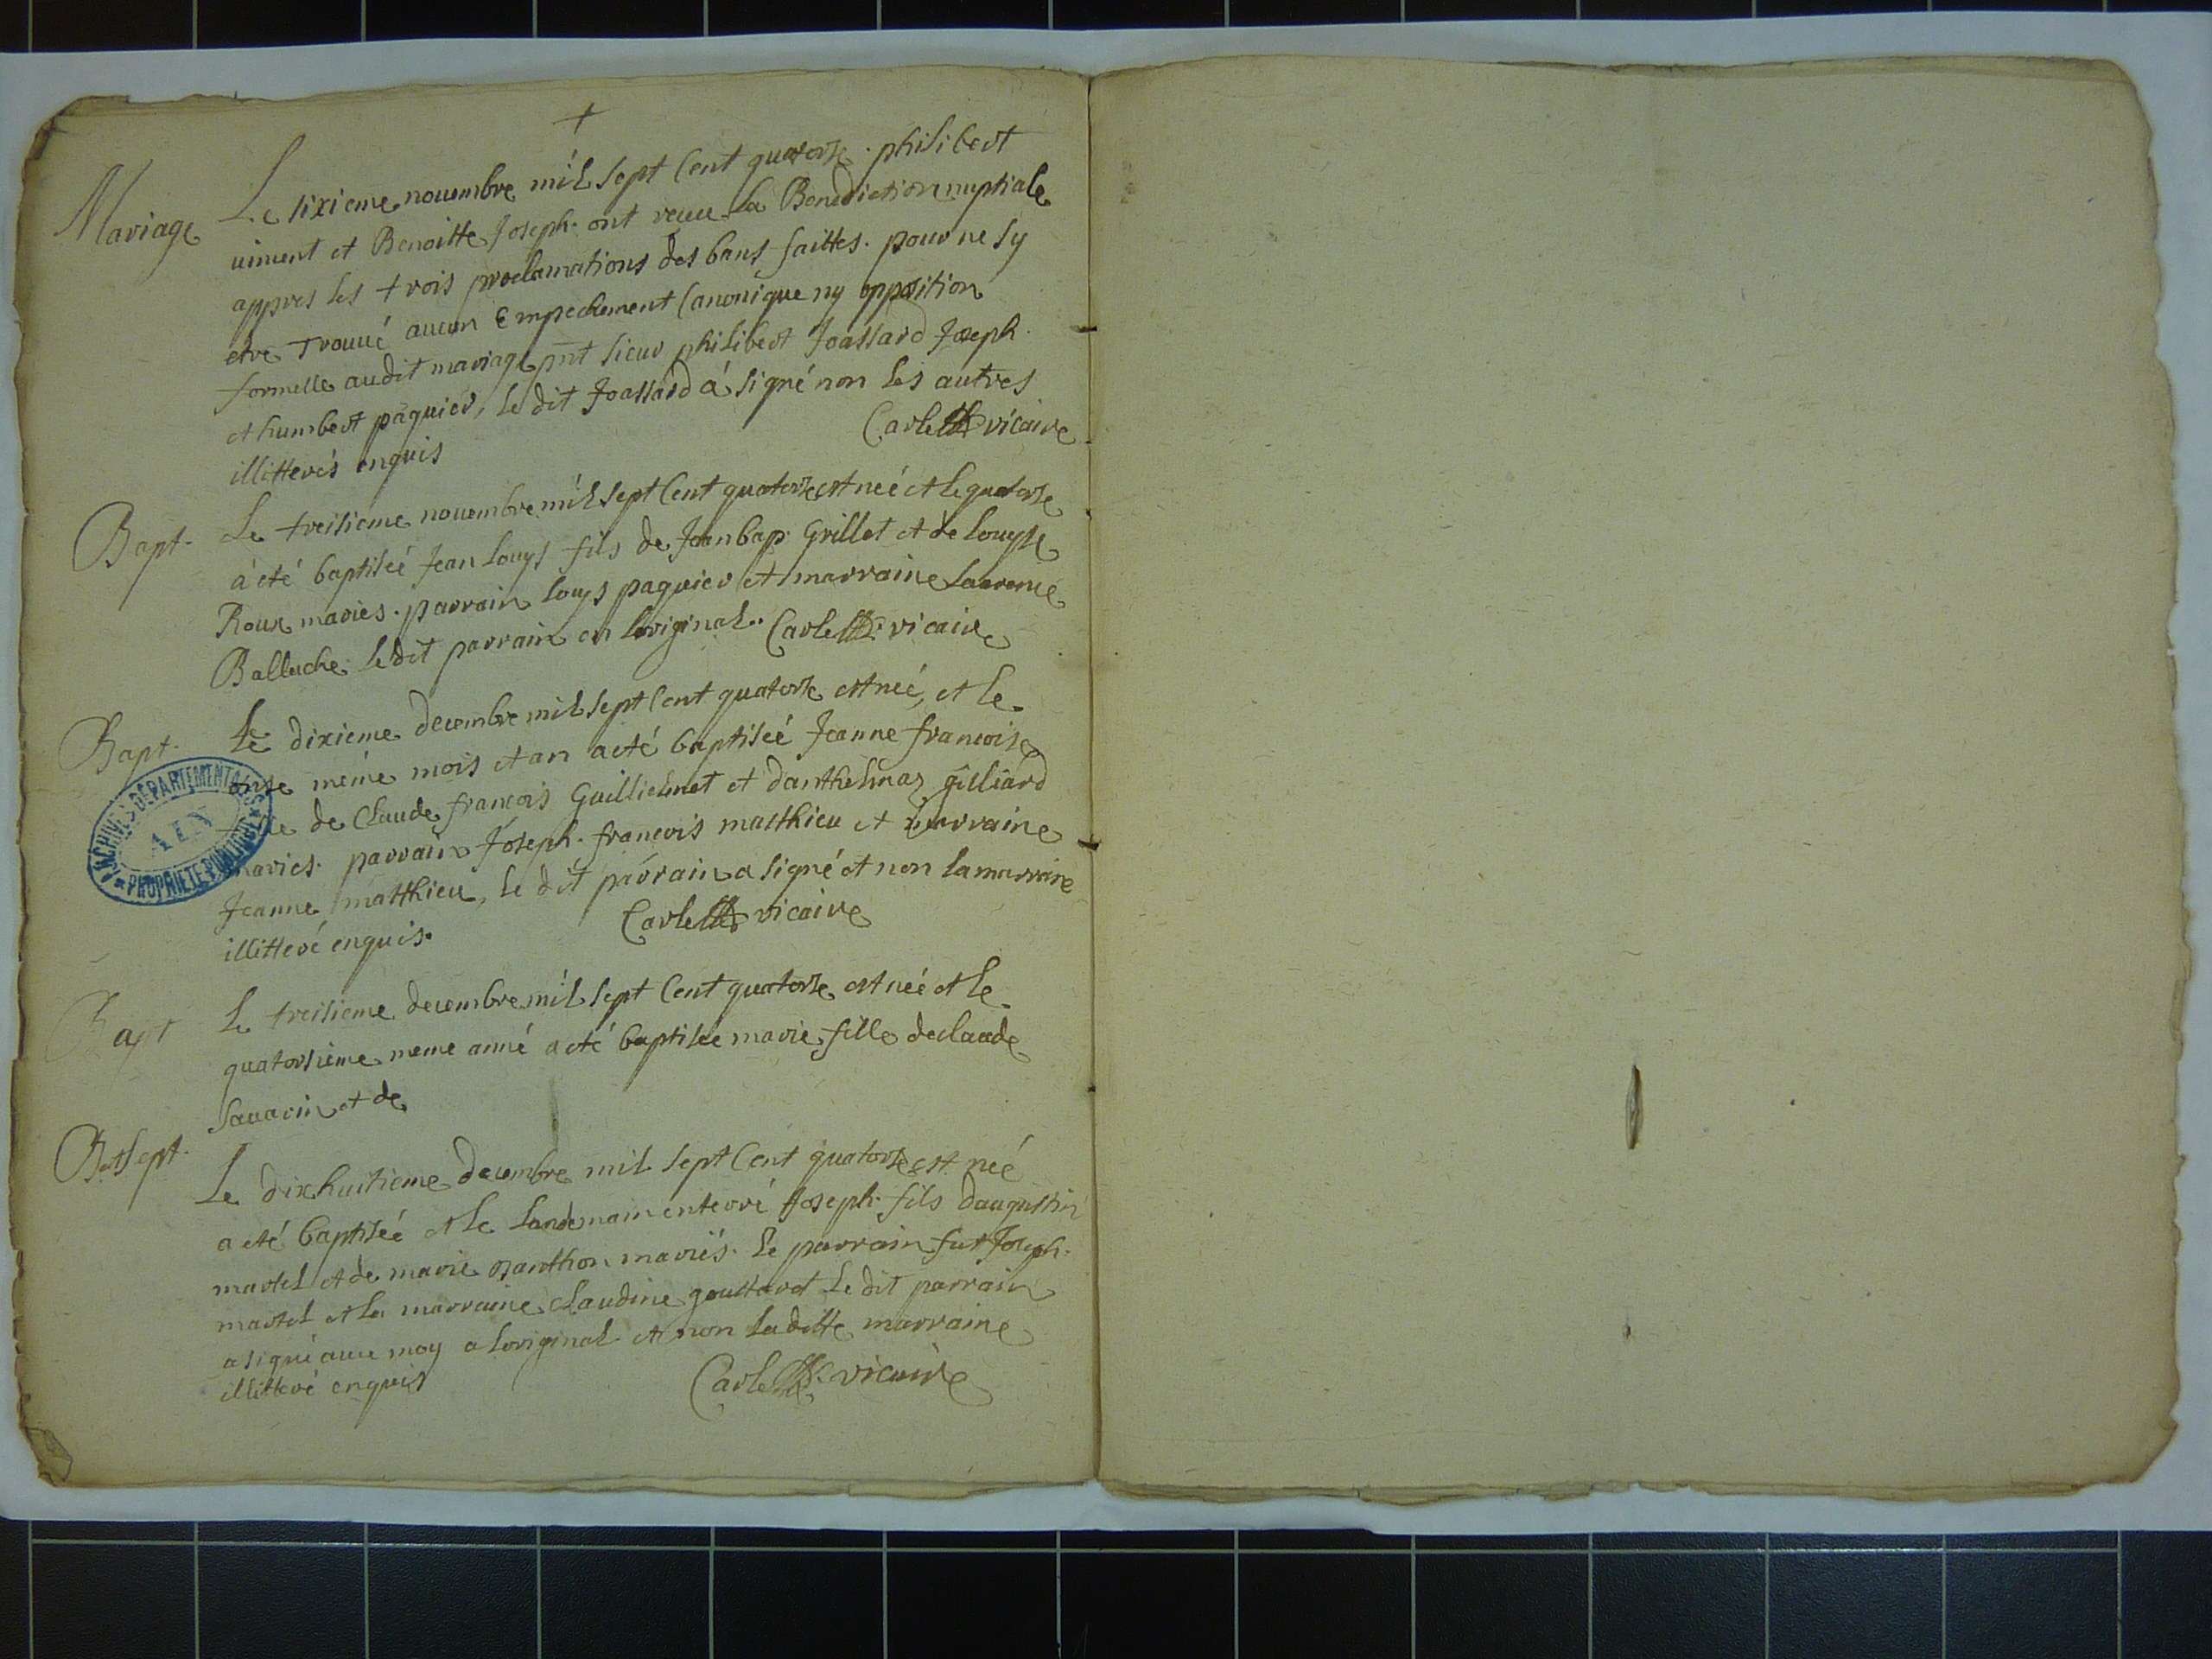 +
Mariage Le sixieme nouembre mil sept Cent quatorse. philibert
uiment et Benoitte Joseph. ont receu la Benediction nuptiale
appres les trois proclamations des bans faittes. pour ne sy
etre trouué aucun Empechement Canonique ny opposition
formelle audit mariage pnt sieur philibert Joassard Joseph
et humbert paquier, le dit Joassard á signé non les autres
illitterés enquis Carle vicaire
Bapt. Le treisieme nouembre mil sept Cent quatorse est neé et le quatorse
á eté baptiseé Jean Louys fils de Jean bap. Grillet et de Louyse
Roux mariés. parrain Louys paquier et marraine Laurence
Balluche. le dit parrain en loriginal. Carle vicaire
Bapt. Le dixieme decembre mil sept Cent quatorse est neé, et le
onse méme mois et an a eté baptiseé Jeanne francoise
fille de Claude francois Guillielmet et danthelmaz gilliard
mariés. parrain Joseph. francois matthieu et marraine
Jeanne matthieu, le dit parrain a signé et non la marraine
illitteré enquis. Carle vicaire
Bapt Le treisieme decembre mil sept Cent quatorse est neé et le
quatorsieme meme anné a eté baptisee marie fille de claude
Sauarin et de
B. et sept. Le dixhuitieme decembre mil sept Cent quatorse est neé
a eté baptiseé et le landemain enterré Joseph. fils daugustin
martel et de marie ozanthon mariés. le parrain fut Joseph.
martel et la marraine Claudine gouttaret le dit parrain
a signé auec moy a loriginal et non la ditte marraine
illitteré enquis Carle vicaire
ARCHIVES DÉPARTEMENTALES
AIN
PROPRIÉTÉ PUBLIQUE